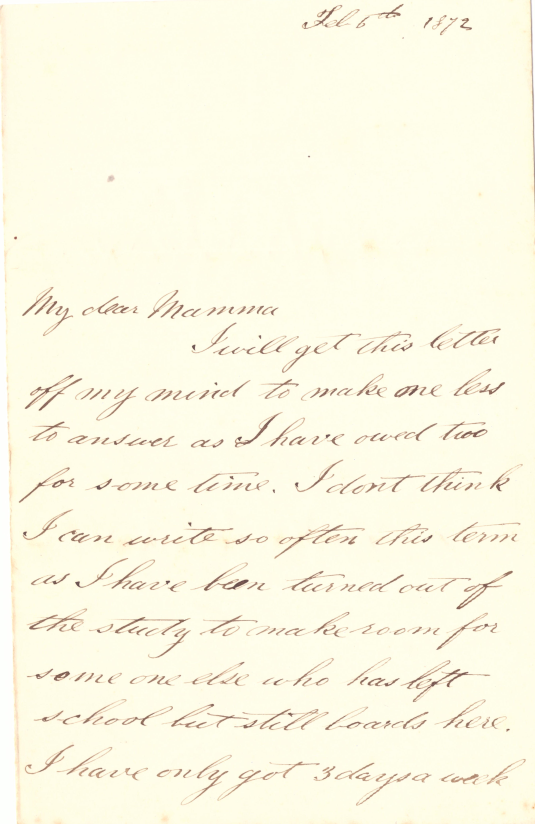 Feb 6th 1872
My dear Mamma
I will get this letter
off my mind to make one less
to answer as I have owed two
for some time. I dont think
I can write so often this term
as I have been turned out of
the study to make room for
some one else who has left
school but still boards here.
I have only got 3 days a week